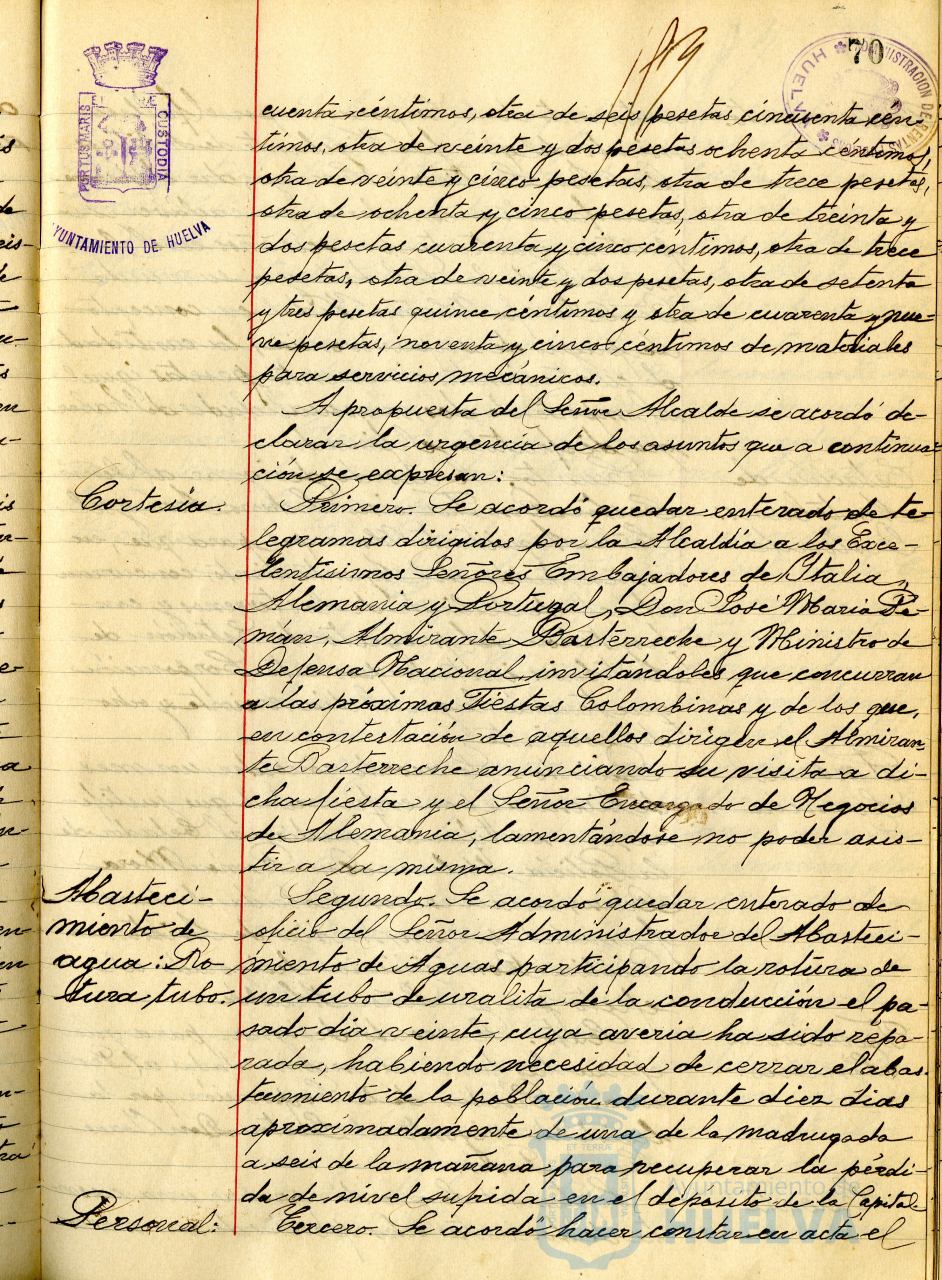 70
ADMINISTRACION DE RENTAS
HUELVA
PORTUS MARIS
CUSTODIA
AYUNTAMIENTO DE HUELVA
cuenta céntimos, otra de seis pesetas cincuenta cén-
timos, otra de veinte y dos pesetas ochenta centimos,
otra de veinte y cinco pesetas, otra de trece pesetas,
otra de ochenta y cinco pesetas, otra de treinta y
dos pesetas cuarenta y cinco céntimos, otra de trece
pesetas, otra de veinte y dos pesetas, otra de setenta
y tres pesetas quince céntimos y otra de cuarenta y nue-
ve pesetas, noventa y cinco céntimos de materiales
para servicios mecánicos.
A propuesta del Señor Alcalde se acordó de-
clarar la urgencia de los asuntos que a continua-
ción se expresan:
Cortesía.
Primero. Se acordó quedar enterado de te-
legramas dirigidos por la Alcaldía a los Exce-
lentísimos Señores Embajadores de Italia,
Alemania y Portugal, Don José Maria Pe-
mán, Almirante Basterreche y Ministro de
Defensa Nacional, invitándoles que concurran
a las próximas Fiestas Colombinas y de los que,
en contestación de aquellos dirigen el Almiran
te Basterreche anunciando su visita a di-
cha fiesta y el Señor Encargado de Negocios
de Alemania, lamentándose no poder asis-
tir a la misma.
Abasteci-
miento de
agua: Ro-
tura tubo.
Segundo. Se acordó quedar enterado de
oficio del Señor Administrador del Abasteci-
miento de Aguas participando la rotura de
un tubo de uralita de la conducción el pa-
sado dia veinte, cuya averia ha sido repa-
rada, habiendo necesidad de cerrar el abas-
tecimiento de la población durante diez dias
aproximadamente de una de la madrugada
a seis de la mañana para recuperar la pérdi-
da de nivel sufrida en el depósito de la Capital
Personal:
Tercero. Se acordó hacer constar en acta el
Ayuntamiento de
HUELVA